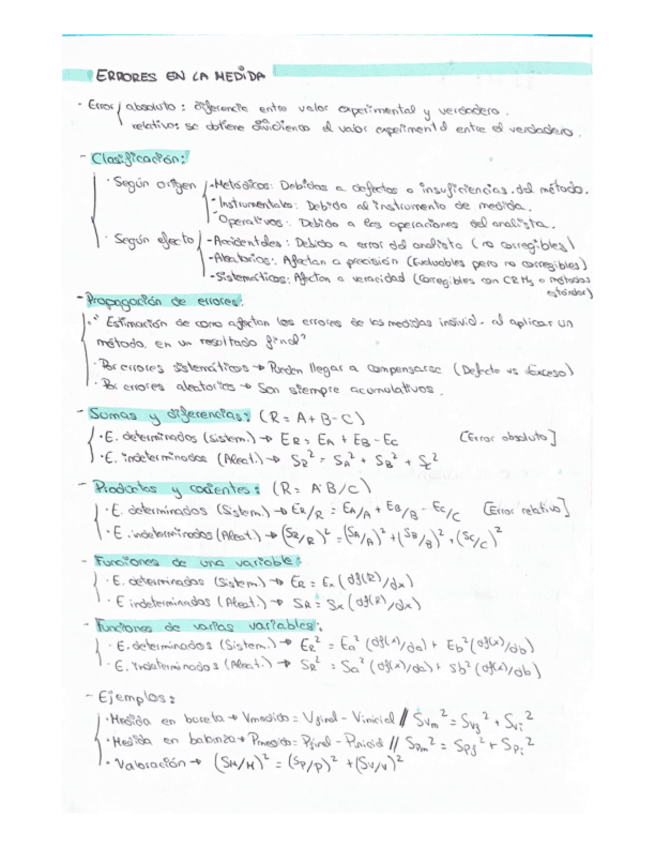 ERRORES EN LA MEDIDA
- Error { absoluto: diferencia entre valor experimental y verdadero.
relativo: se obtiene dividiendo el valor experimental entre el verdadero.
- Clasificación:
· Según origen { - Metódicos: Debidos a defectos o insuficiencias del método.
- Instrumentales: Debido al instrumento de medida.
- Operativos: Debido a las operaciones del analista.
· Según efecto { - Accidentales: Debido a error del analista (no corregibles)
- Aleatorios: Afectan a precisión (Evaluables pero no corregibles)
- Sistemáticos: Afectan a veracidad (Corregibles con CRMs o métodos estándar)
- Propagación de errores:
· "Estimación de como afectan los errores de las medidas individ. al aplicar un
método, en un resultado final"
· Por errores sistemáticos → Pueden llegar a compensarse (Defecto vs Exceso)
· Por errores aleatorios → Son siempre acumulativos.
- Sumas y diferencias: (R = A + B - C)
· E. determinados (sistem.) → ER = EA + EB - EC [Error absoluto]
· E. indeterminados (Aleat.) → SR² = SA² + SB² + SC²
- Productos y cocientes: (R = A·B/C)
· E. determinados (Sistem.) → ER/R = EA/A + EB/B - EC/C [Error relativo]
· E. indeterminados (Aleat.) → (SR/R)² = (SA/A)² + (SB/B)² + (SC/C)²
- Funciones de una variable:
· E. determinados (Sistem.) → ER = Ex (df(R)/dx)
· E indeterminados (Aleat.) → SR = Sx (df(R)/dx)
- Funciones de varias variables:
· E. determinados (Sistem.) → ER² = Ea² (df(x)/da) + Eb² (df(x)/db)
· E. indeterminados (Aleat.) → SR² = Sa² (df(x)/da) + Sb² (df(x)/db)
- Ejemplos:
· Medida en bureta → Vmedido = Vfinal - Vinicial // SVm² = SVf² + SVi²
· Medida en balanza → Pmedido = Pfinal - Pinicial // SPm² = SPf² + SPi²
· Valoración → (SM/M)² = (SP/P)² + (SV/V)²